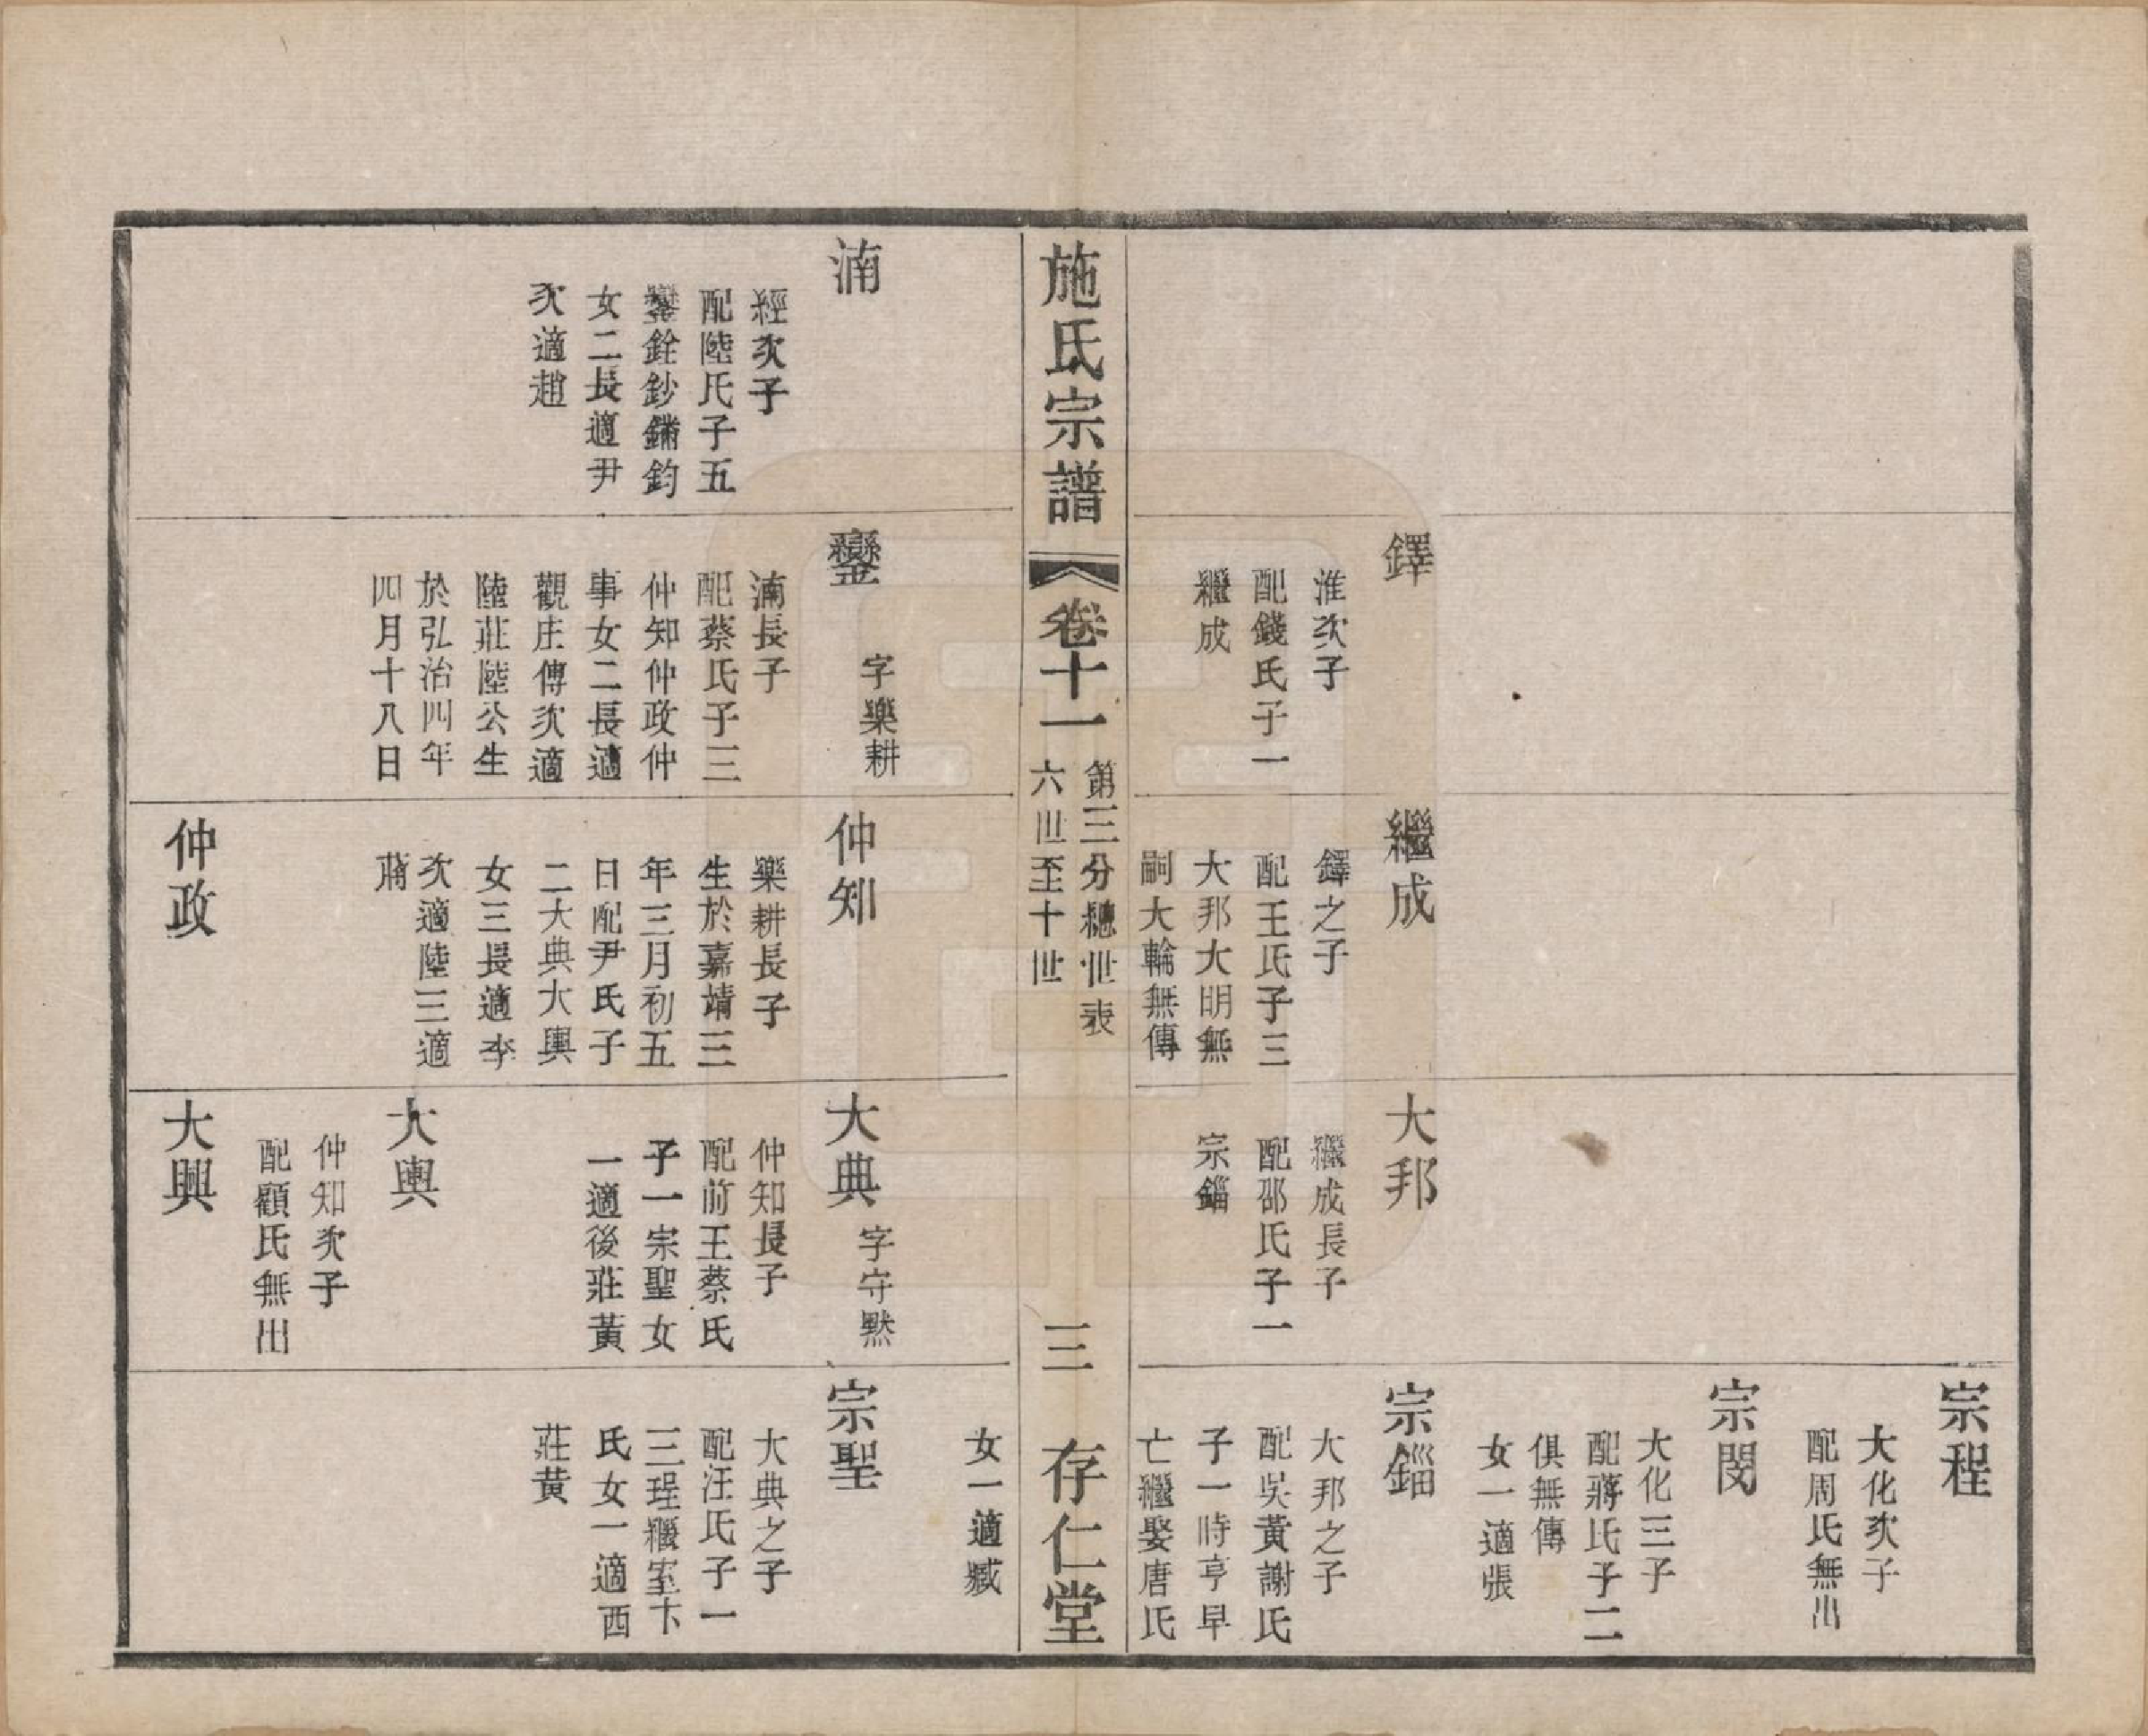 鐸
淮次子
配錢氏子一
繼成
繼成
鐸之子
配王氏子三
大邦大明無
嗣大輪無傳
大邦
繼成長子
配邵氏子一
宗錙
宗程
大化次子
配周氏無出
宗閔
大化三子
配蔣氏子二
俱無傳
女一適張
宗錙
大邦之子
配吳黃謝氏
子一時亨早
亡繼娶唐氏
施氏宗譜
卷十一
第三分總世表
六世至十世
三
存仁堂
女一適臧
湳
經次子
配陸氏子五
鑾銓鈔鏞鈞
女二長適尹
次適趙
鑾
字樂耕
湳長子
配蔡氏子三
仲知仲政仲
事女二長適
觀庄傳次適
陸莊陸公生
於弘治四年
四月十八日
仲知
樂耕長子
生於嘉靖三
年三月初五
日配尹氏子
二大典大輿
女三長適李
次適陸三適
蔣
仲政
大典
字守默
仲知長子
配前王蔡氏
子一宗聖女
一適後莊黃
大輿
仲知次子
配顧氏無出
大興
宗聖
大典之子
配汪氏子一
三珵繼室卞
氏女一適西
莊黄